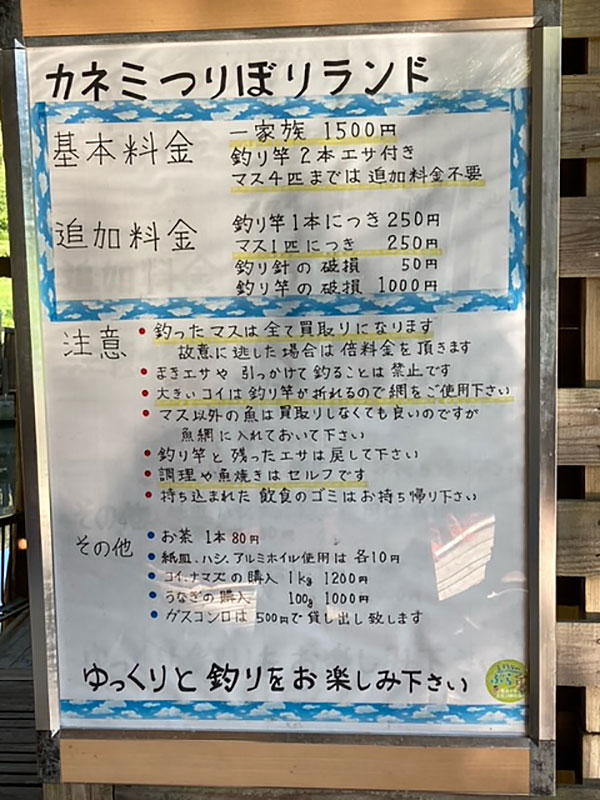 カネミつりぼりランド
基本料金
一家族 1500円
釣り竿2本エサ付き
マス4匹までは追加料金不要
追加料金
釣り竿1本につき250円
マス1匹につき 250円
釣り針の破損 50円
釣り竿の破損 1000円
注意
• 釣ったマスは全て買取りになります
故意に逃した場合は倍料金を頂きます
• まきエサや引っかけて釣ることは禁止です
• 大きいコイは釣り竿が折れるので網をご使用下さい
• マス以外の魚は買取りしなくても良いのですが
魚網に入れておいて下さい
• 釣り竿と残ったエサは戻して下さい
• 調理や魚焼きはセルフです
• 持ち込まれた飲食のゴミはお持ち帰り下さい
その他
• お茶 1本80円
• 紙皿、ハシ、アルミホイル使用は各10円
• コイ、ナマズの購入 1kg 1200円
• うなぎの購入 100g 1000円
• ガスコンロは500円で貸し出し致します
ゆっくりと釣りをお楽しみ下さい